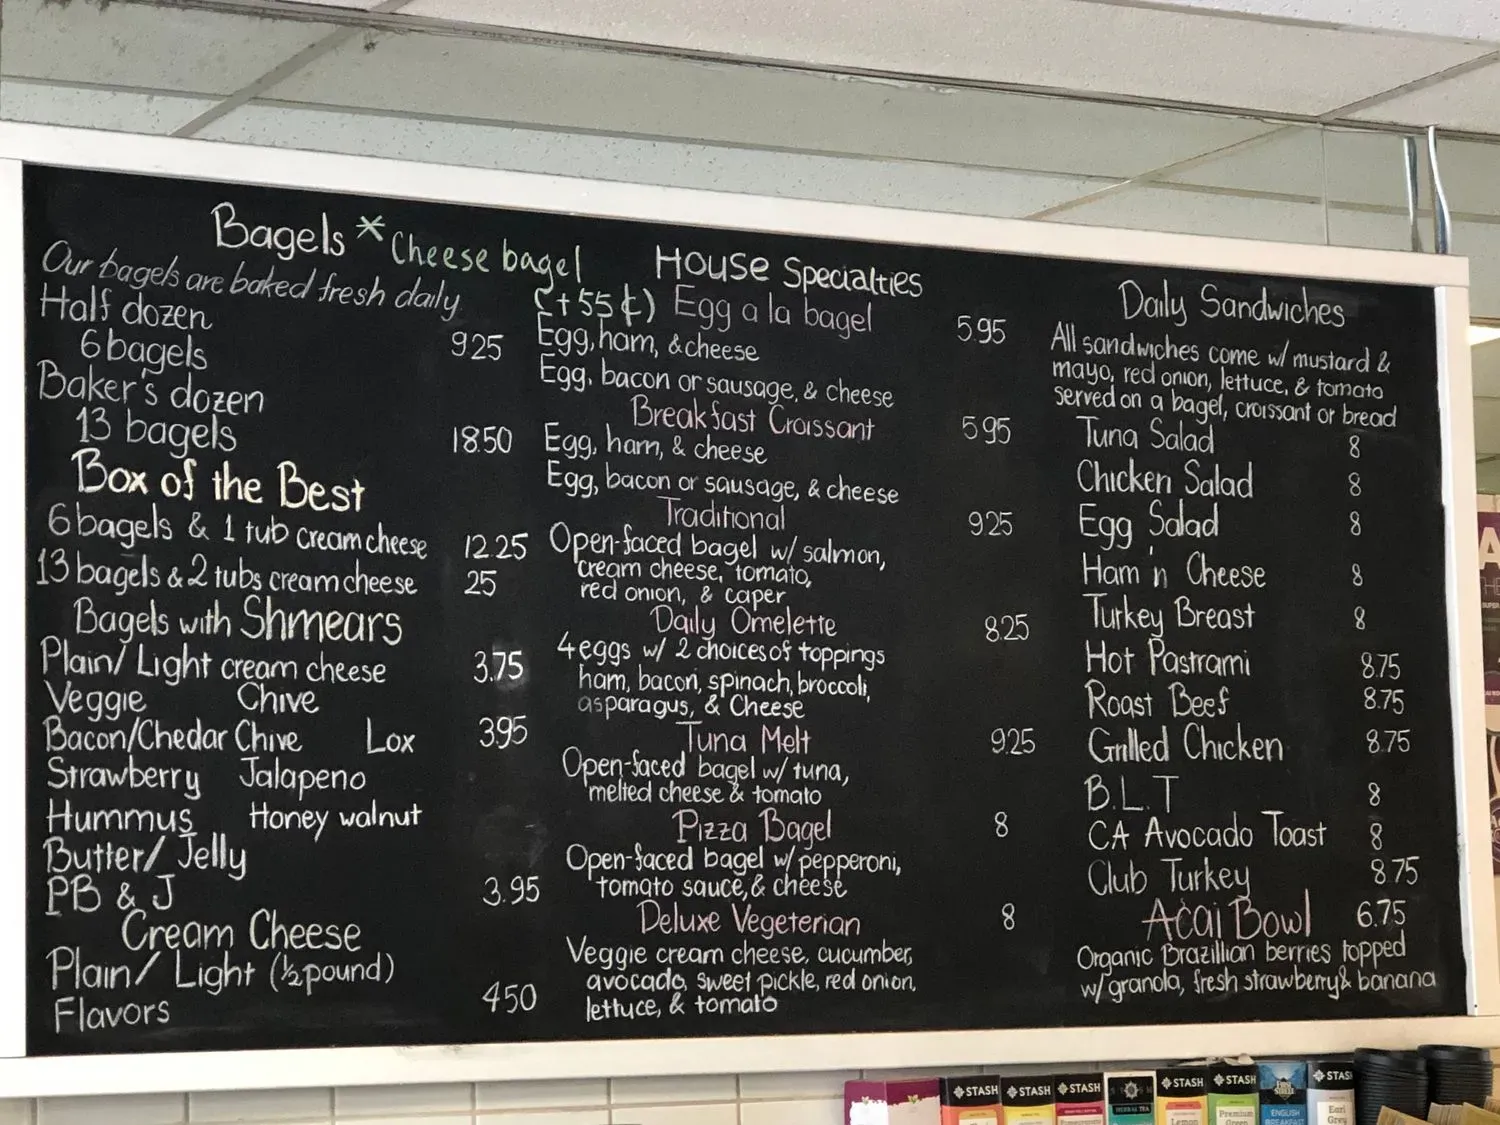 Bagels * Cheese bagel (+55¢)
Our bagels are baked fresh daily
Half dozen
6 bagels 9.25
Baker's dozen
13 bagels 18.50
Box of the Best
6 bagels & 1 tub cream cheese 12.25
13 bagels & 2 tubs cream cheese 25
Bagels with Shmears
Plain/Light cream cheese 3.75
Veggie Chive
Bacon/Chedar Chive Lox 3.95
Strawberry Jalapeno
Hummus Honey walnut
Butter/Jelly
PB & J 3.95
Cream Cheese
Plain/Light (½ pound)
Flavors 4.50
House Specialties
Egg a la bagel 5.95
Egg, ham, & cheese
Egg, bacon or sausage, & cheese
Breakfast Croissant 5.95
Egg, ham, & cheese
Egg, bacon or sausage, & cheese
Traditional 9.25
Open-faced bagel w/ salmon,
cream cheese, tomato,
red onion, & caper
Daily Omelette 8.25
4 eggs w/ 2 choices of toppings
ham, bacon, spinach, broccoli,
asparagus, & Cheese
Tuna Melt 9.25
Open-faced bagel w/ tuna,
melted cheese & tomato
Pizza Bagel 8
Open-faced bagel w/ pepperoni,
tomato sauce, & cheese
Deluxe Vegeterian 8
Veggie cream cheese, cucumber,
avocado, sweet pickle, red onion,
lettuce, & tomato
Daily Sandwiches
All sandwiches come w/ mustard &
mayo, red onion, lettuce, & tomato
served on a bagel, croissant or bread
Tuna Salad 8
Chicken Salad 8
Egg Salad 8
Ham 'n Cheese 8
Turkey Breast 8
Hot Pastrami 8.75
Roast Beef 8.75
Grilled Chicken 8.75
B.L.T 8
CA Avocado Toast 8
Club Turkey 8.75
Acai Bowl 6.75
Organic Brazillian berries topped
w/ granola, fresh strawberry & banana
STASH
STASH
STASH
HERBAL TEA
STASH
Lemon
STASH
Premium
Green
ENGLISH
BREAKFAST
STASH
Earl
Grey